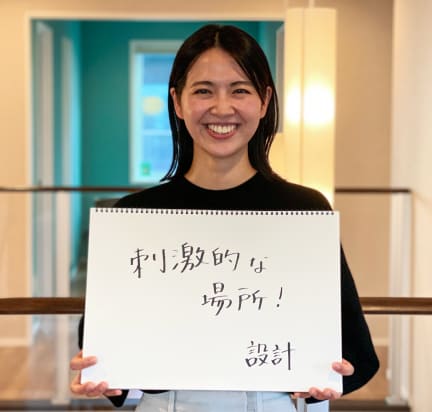 刺激的な
場所!
設計